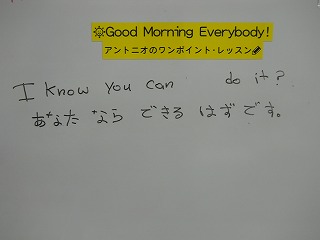 Good Morning Everybody!
アントニオのワンポイント・レッスン
I know you can do it?
あなた なら できる はず です。